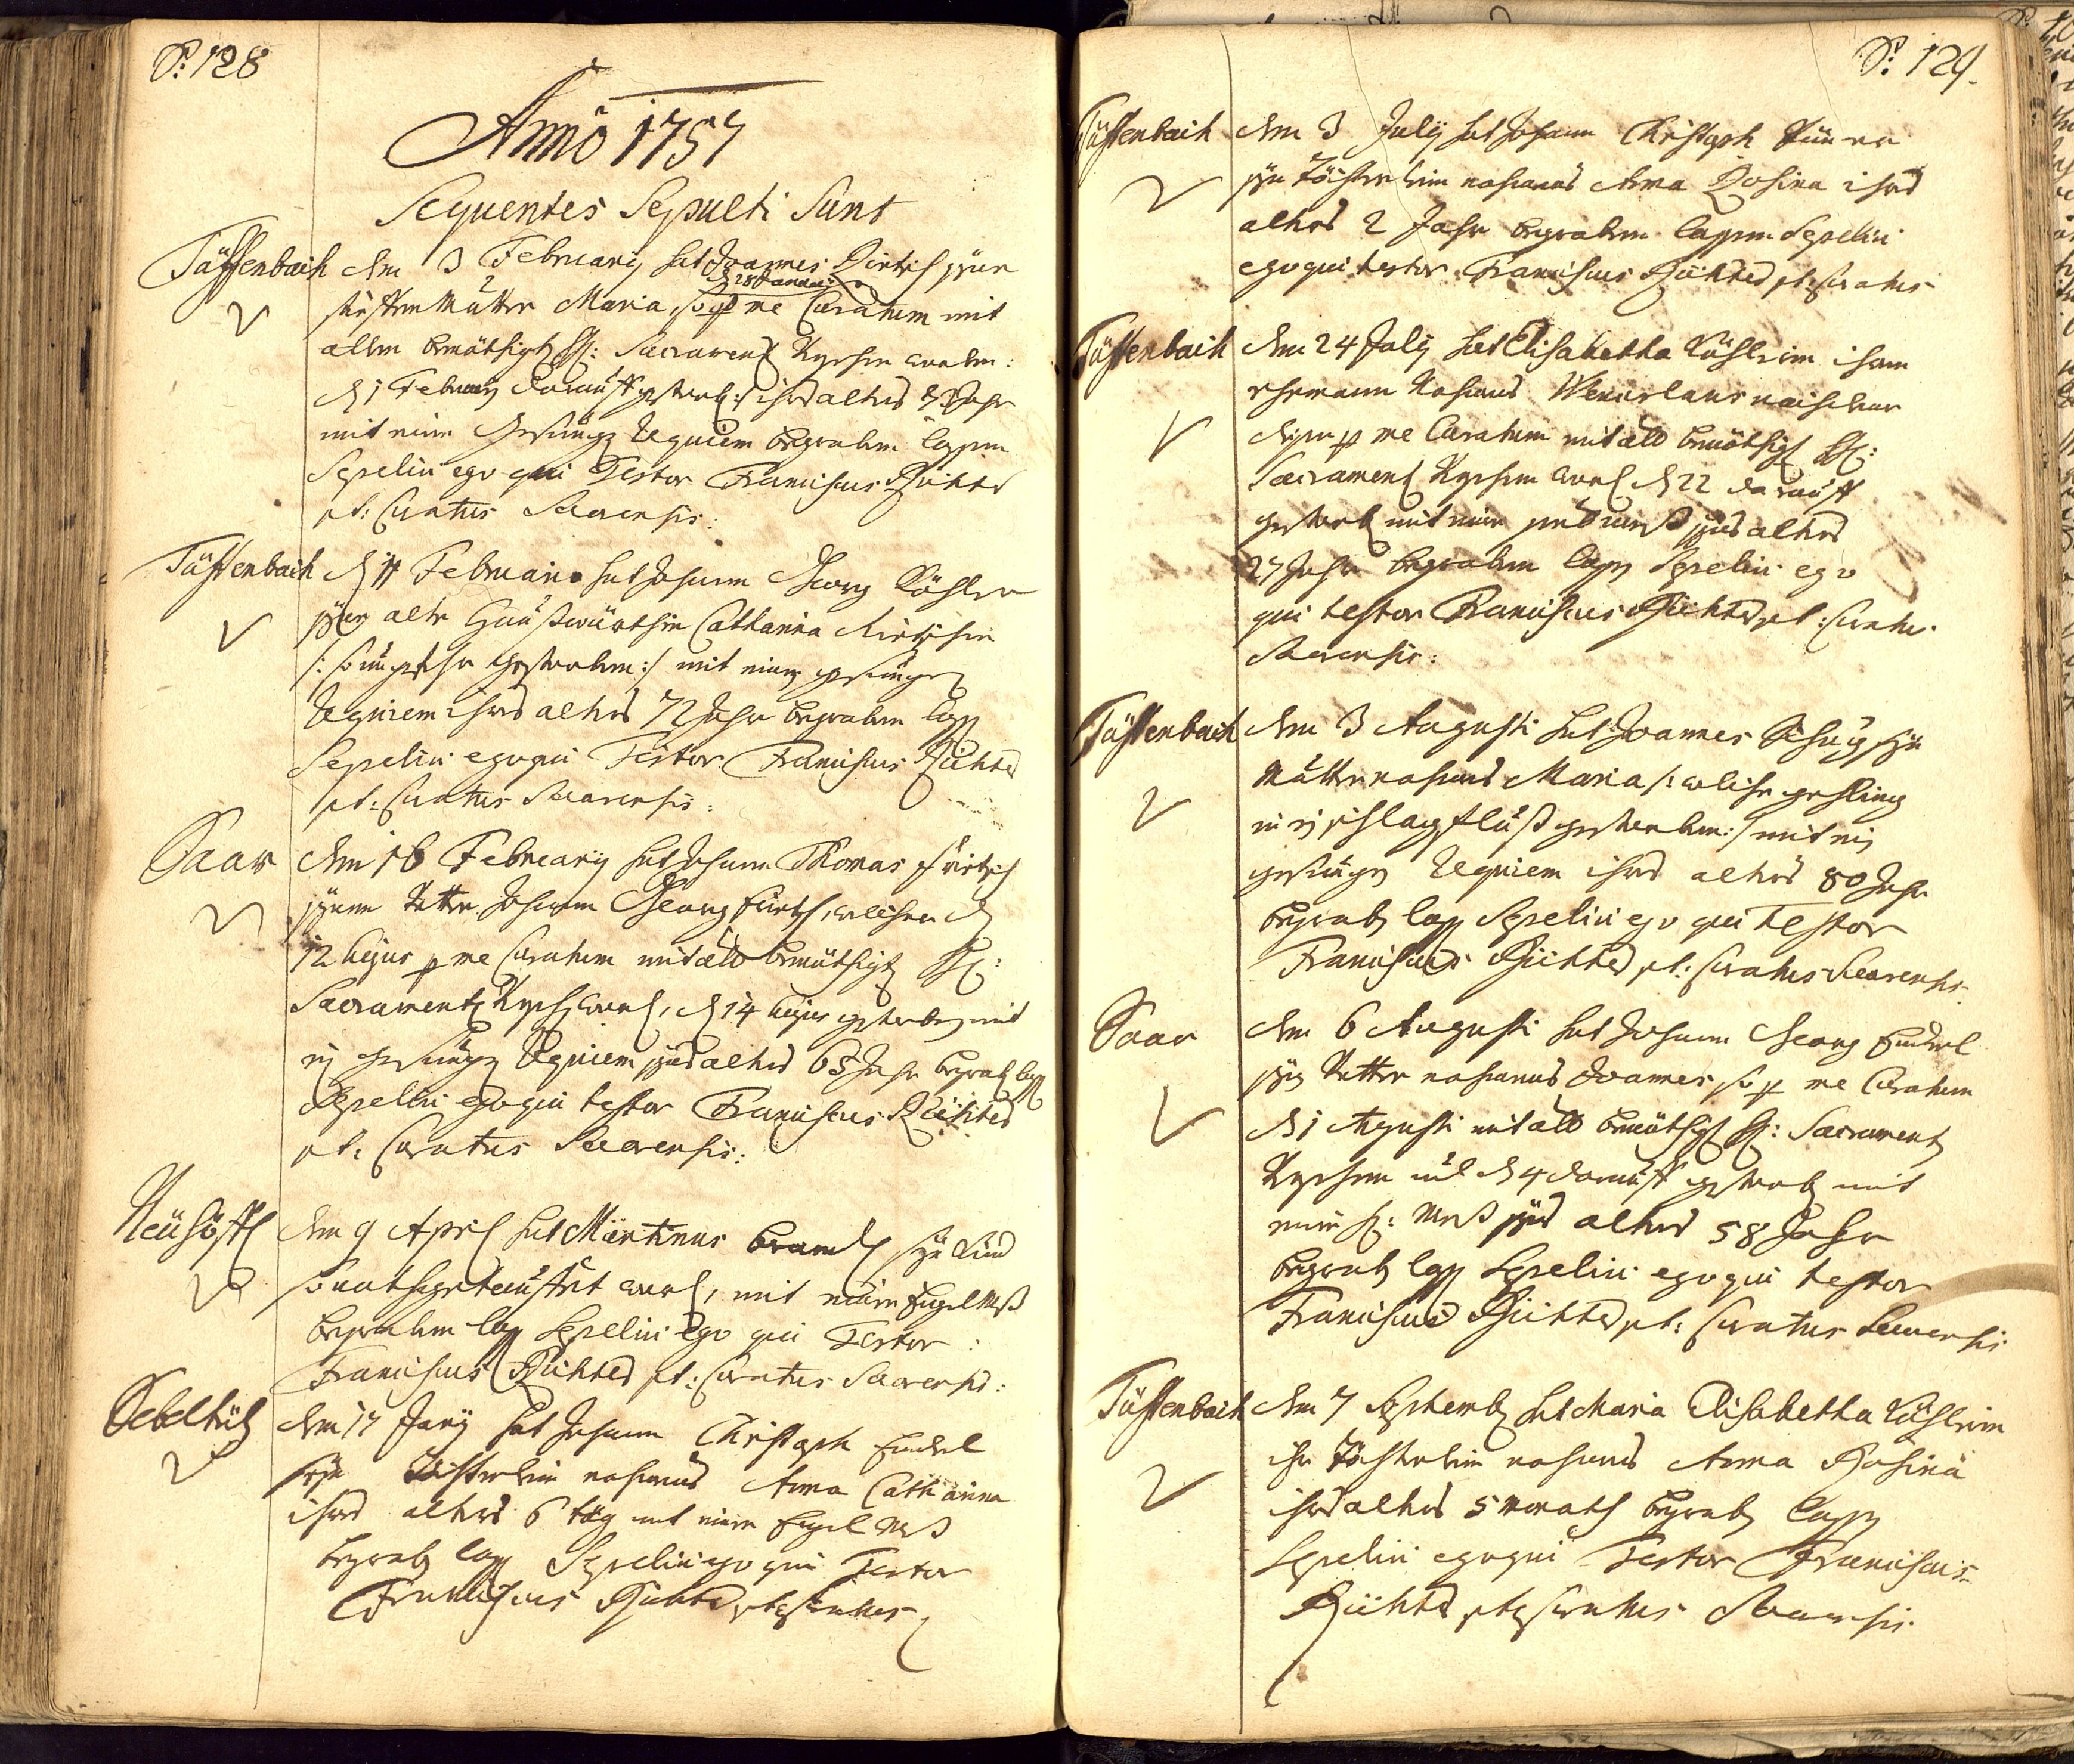 P: 128
Annõ 1757
Sequentes Sepulti Sunt
Täffenbach den 3 Februarij hat Joannes Dietsch seine
d 28 Januarij
Mutter Maria, so p me Curatum mit
allen benöthigt H: Sacrament Versehen worden:
d 1 Februarij darauff gestorb: ihres alters Jahr
mit einem gesungenen Requiem begraben lassen
Sepelivi ego qui Testor Franciscus Richter
pt: Curatus Saarensis:
Täffenbach d Februarii hat Johann Georg Köhler
seine alte Haußwürthin Catharina
/: so gestorben :/ mit einem gesungen
Requiem ihres alters 72 Jahr begraben lass
Sepelivi ego qui Testor Franciscus Richter
pt: Curatus Saarensis:
Saar den 16 Februarij hat Johann Thomas
seinen Vatter Johann Georg, welcher d
12 hujus p me Curatum mit all benöthigt H:
Sacrament Verseh word, d 14 hujus gestorben mit
ein gesungen Requiem seines alters 68 Jahr begrab lass
Sepelivi ego qui testor Franciscus Richter
pt: Curatus Saarensis:
den 9 April hat Martinus sein Kind
so nothgetauffet word, mit einer Engel Meß
begraben lass Sepelivi Ego qui Testor:
Franciscus Richter pt: Curatus Saarensis:
den 17 Junij hat Johann Christoph
sein Töchterlein nahmens Anna Catharina
ihres alters 6 täg mit einer Engel Meß
begrab lass Sepelivi ego qui Testor
Franciscus Richter pt Curatus
P: 129.
Täffenbach den 3 Julij hat Johann Christoph
sein Töchterlein nahmens Anna Rosina ihres
alters 2 Jahr begraben lassen Sepelivi
ego qui testor Franciscus Richter pt: Curatus
Täffenbach den 24 Julij hat Elisabetha Köhlerin ihren
ehemann Nahmens Wenceslaus welcher
p me Curatum mit all benöthigt H:
Sacrament Versehen word d 22 darauff
gestorb mit einer Meß seines alters
27 Jahr begraben lass Sepelivi ego
qui testor Franciscus Richter pt: Curatus
Saarensis:
Täffenbach den 3 Augusti hat Joannes seine
Mutter nahmens Maria /: welche gehling
in ein schlagfluß gestorben :/ mit ein
gesungen Requiem ihres alters 80 Jahr
begrab lass Sepelivi ego qui testor
Franciscus Richter pt: Curatus Saarensis
Saar den 6 Augusti hat Johann Georg
sein Vatter nahmens Joannes, so p me Curatum
d 1 Augusti mit all benöthigt H: Sacrament
Versehen und d 4 darauff gestorb mit
einer H: Meß seines alters 58 Jahr
begrab lass Sepelivi ego qui testor
Franciscus Richter pt: Curatus Saarensis
Täffenbach den 7 Septemb hat Maria Elisabetha Köhlerin
ihr Töchterlein nahmens Anna Rosina
ihres alters 5 Monath begrab lassen
Sepelivi ego qui Testor Franciscus
Richter pt Curatus Saarensis